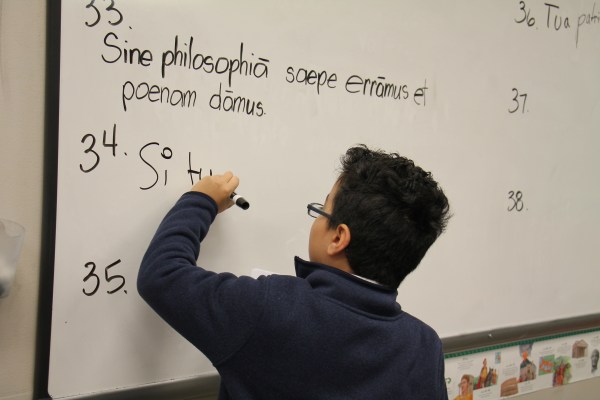 33.
Sine philosophiā saepe errāmus et
poenam dāmus.
34. Si tu
35.
36. Tua patri
37.
38.